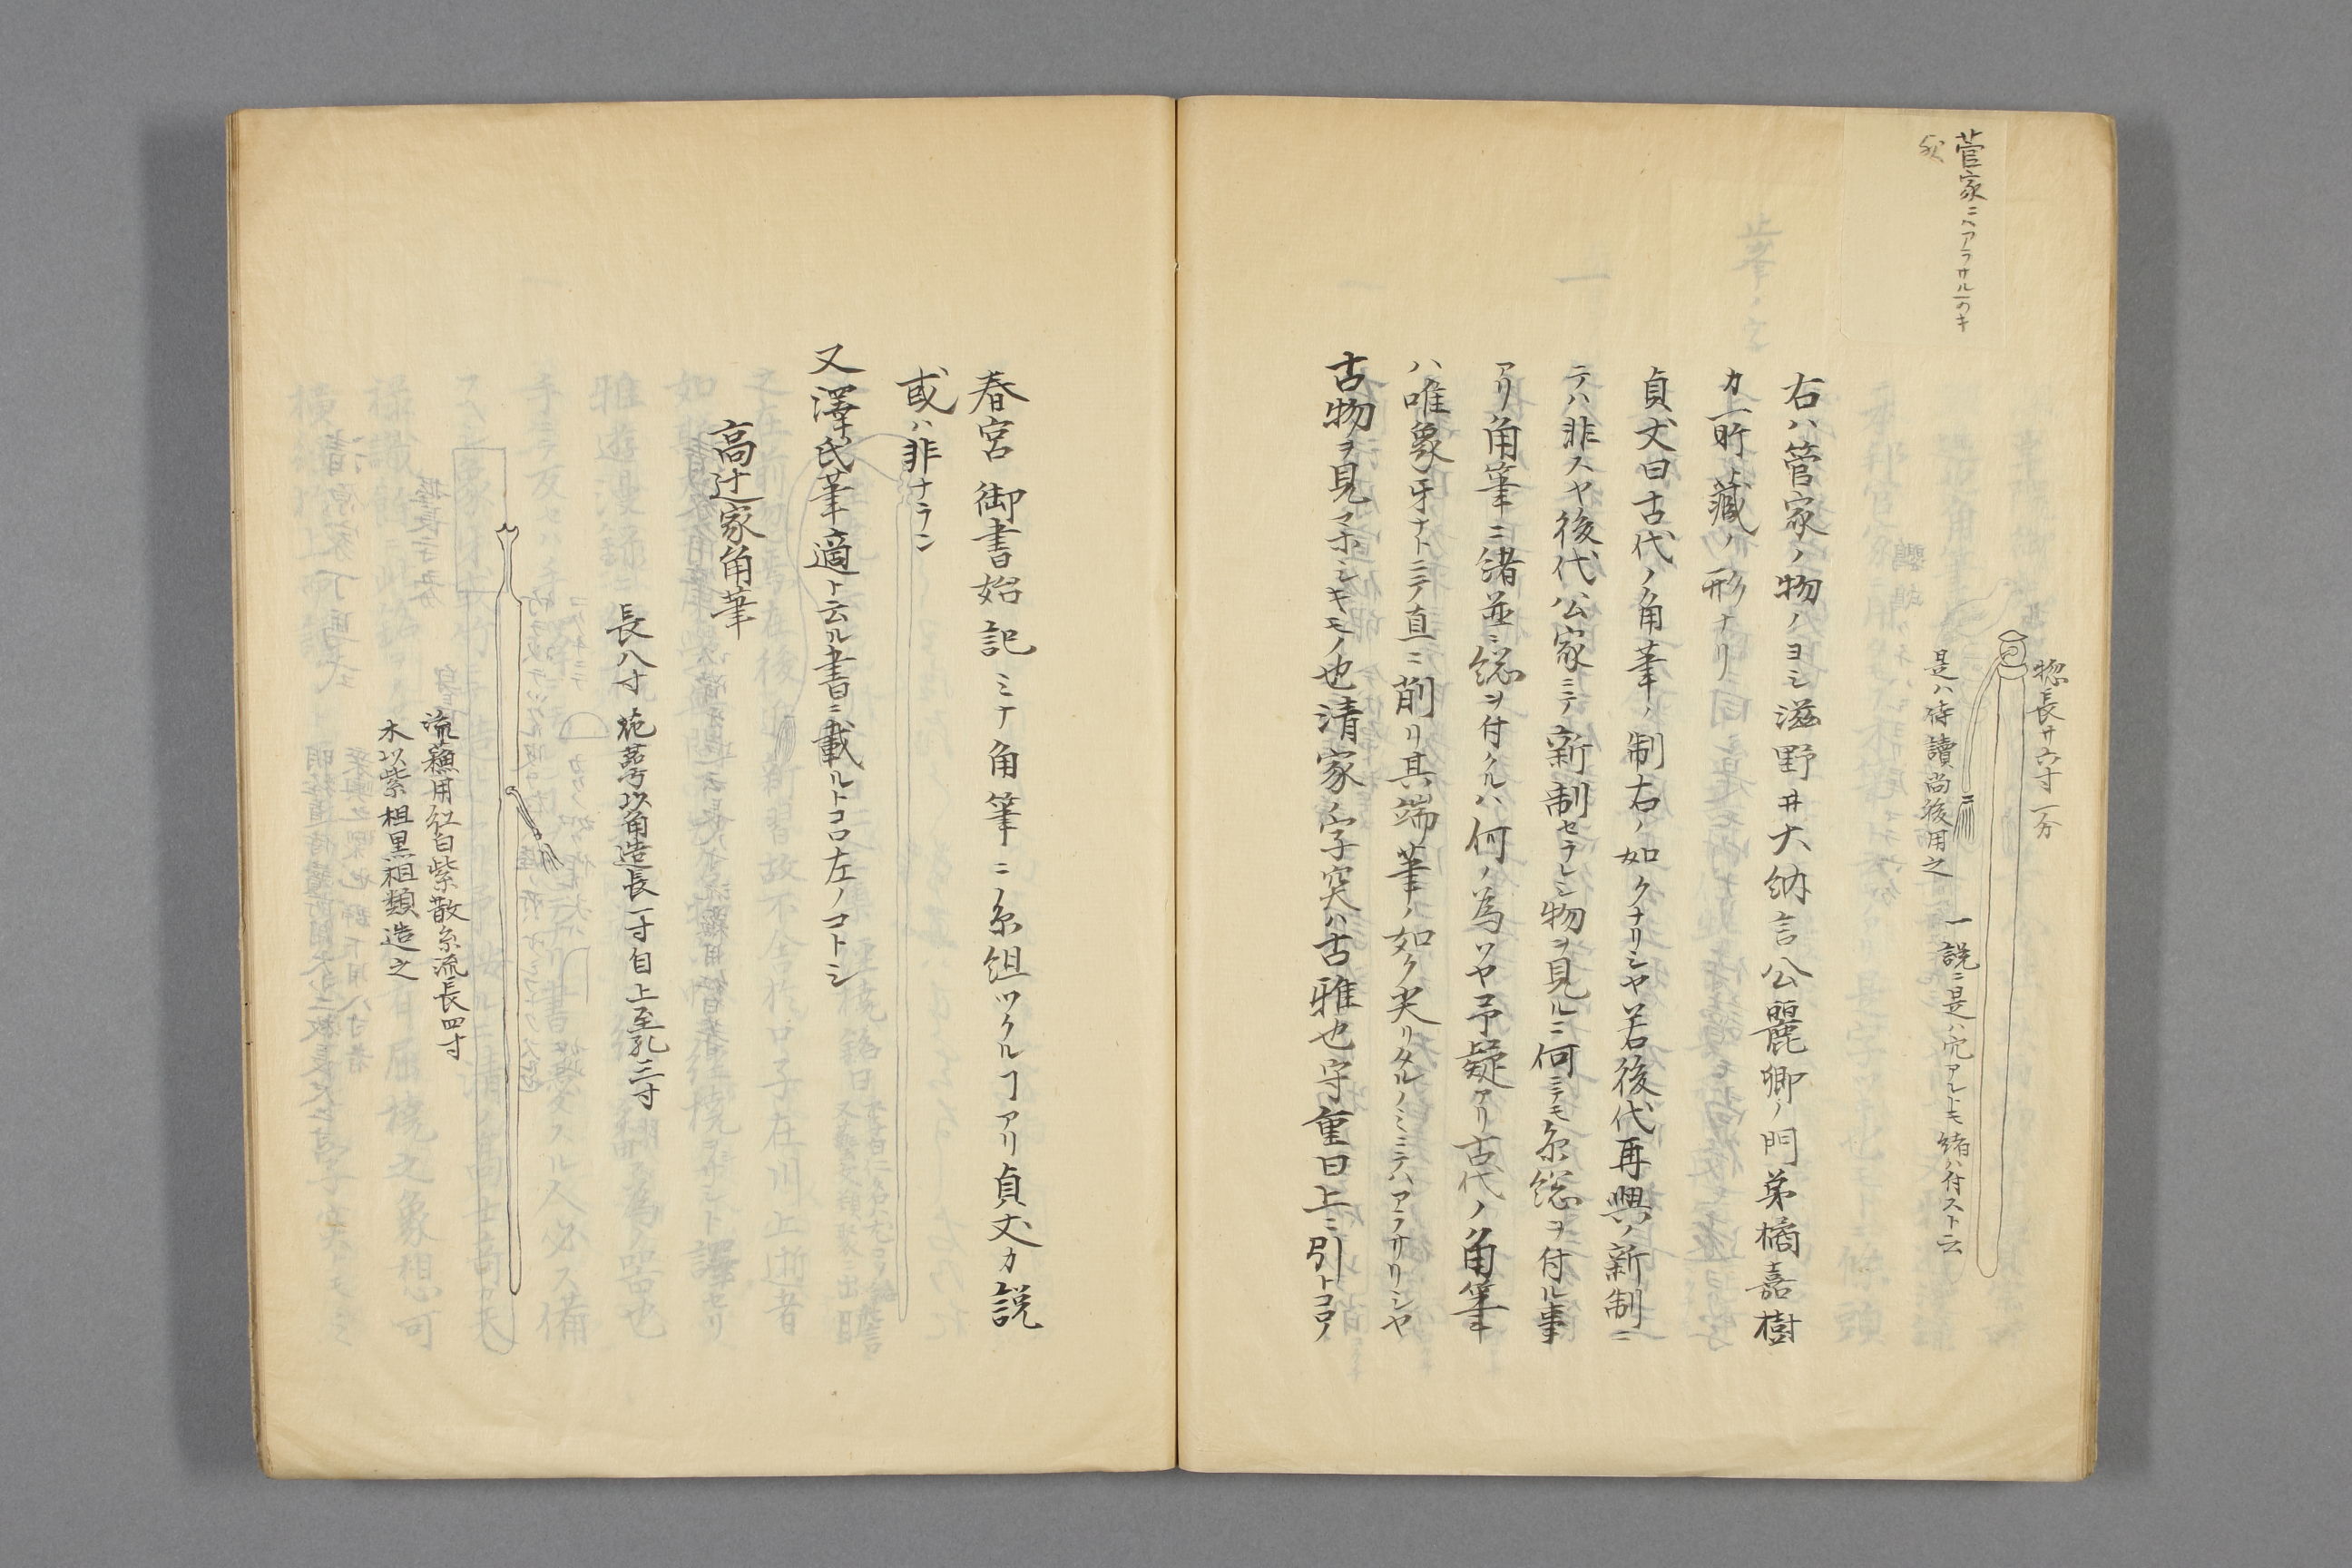 菅家ニヘアラサル
惣長廿六寸一分
是ハ侍讀尚後用之
一説ニ是ハ穴アルトモ緒ハ付スト云
右ハ菅家ノ物ノヨシ滋野井大納言公麗卿ノ門弟橘嘉樹
カ所藏ノ形ナリ
貞丈曰古代ノ角筆ノ制右ノ如クナリシヤ若後代再興ノ新制ニ
テハ非スヤ後代公家ニテ新制セラレシ物ヲ見ルニ何ニテモ糸総ヲ付ル事
アリ角筆ニ緒並ニ総ヲ付クルハ何ノ為ソヤ予疑アリ古代ノ角筆
ハ唯象牙ナトニテ直ニ削リ其端筆ノ如ク尖リタルノミニテハアラサリシヤ
古物ヲ見マホシキモノ也清家ノ字突ハ古雅也守重曰上ニ引トコロノ
春宮御書始記ミテ角筆ニ糸組ツクルヿアリ貞丈カ説
或ハ非ナラン
又澤氏筆適ト云ル書ニ載ルトコロ左ノコトシ
高辻家角筆
長八寸花蕚以角造長一寸自上至孔三寸
流蘓用紅白紫散糸流長四寸
木以紫柤黒柤類造之